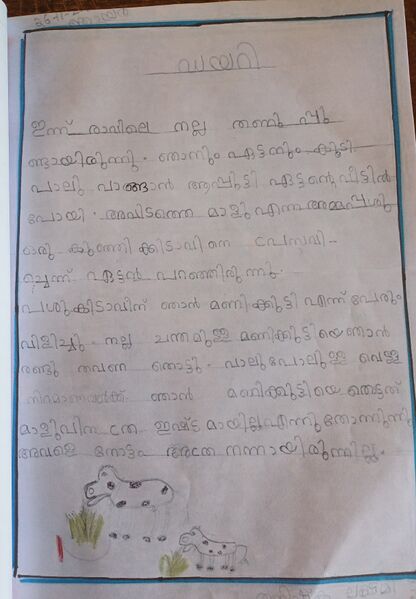 ഡയറി
ഇന്ന് രാവിലെ നല്ല തണുപ്പു
ണ്ടായിരുന്നു. ഞാനും ഏട്ടനും കൂടി
പാലു വാങ്ങാൻ ആപ്പുട്ടി ഏട്ടന്റെ വീട്ടിൽ
പോയി. അവിടത്തെ മാളു എന്ന അമ്മപശു
ഒരു കുഞ്ഞിക്കിടാവിനെ പ്രസവി-
ച്ചെന്ന് ഏട്ടൻ പറഞ്ഞിരുന്നു.
പശുകിടാവിന് ഞാൻ മണിക്കുട്ടി എന്ന് പേരും
വിളിച്ചു. നല്ല ചന്തമുള്ള മണിക്കുട്ടിയെ ഞാൻ
രണ്ടു തവണ തൊട്ടു. പാലുപോലുള്ള വെള്ള
നിറമാണവൾക്ക്. ഞാൻ മണിക്കുട്ടിയെ തൊട്ടത്
മാളുവിനത്ര ഇഷ്ടമായില്ല എന്നു തോന്നുന്നു
അവളെ നോട്ടം അത്ര നന്നായിരുന്നില്ല.